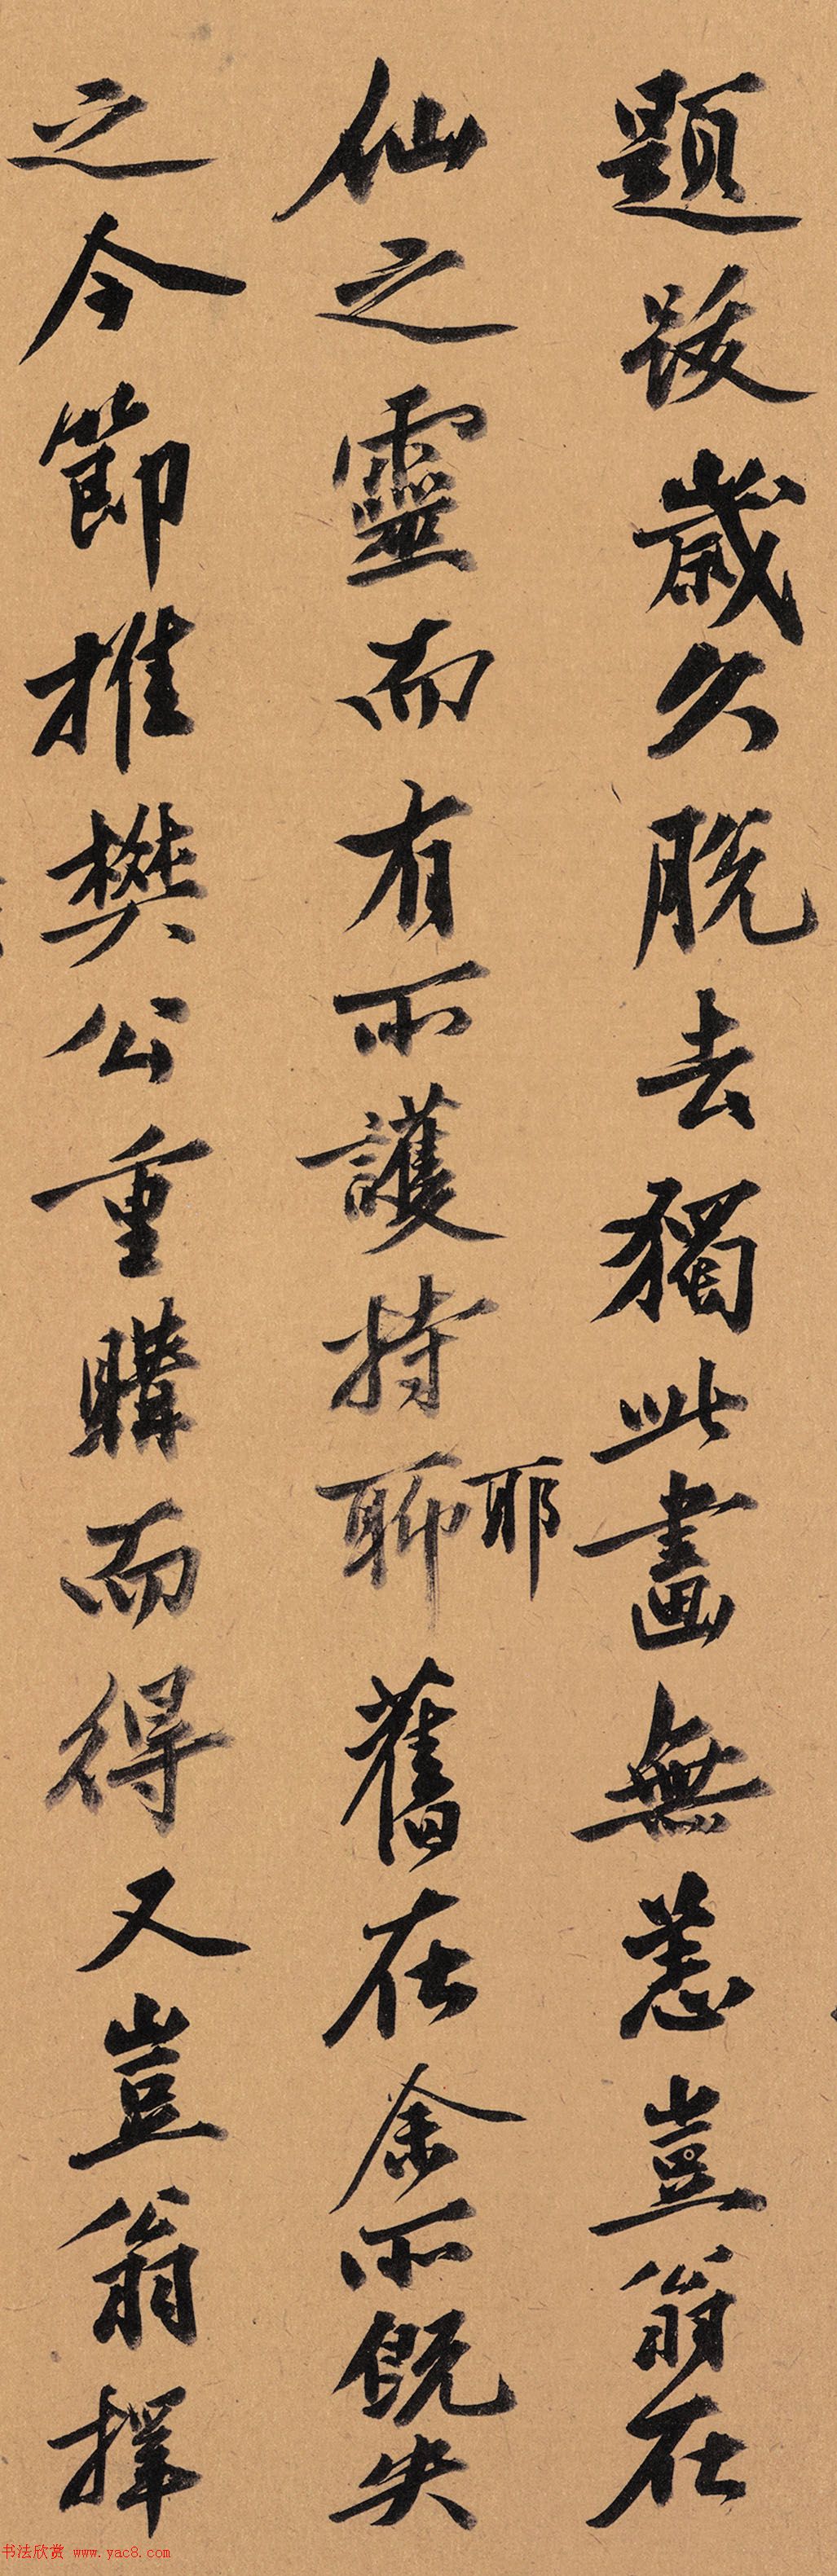 題跋歲久脫去獨此畫無恙豈翁在
仙之靈而有所護持耶聊舊在余所既失
之今節推樊公重購而得又豈翁擇
书法欣赏 www.yac8.com